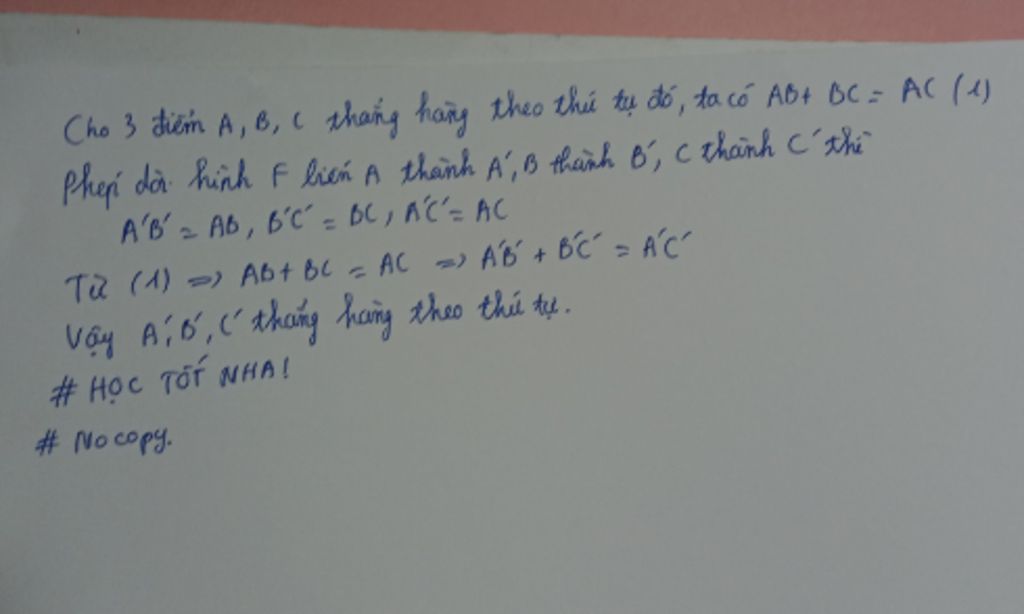 Cho 3 điểm A, B, C thẳng hàng theo thứ tự đó, ta có AB + BC = AC (1)
Phép dời hình F biến A thành A', B thành B', C thành C' thì
A'B' = AB, B'C' = BC, A'C' = AC
Từ (1) => AB + BC = AC => A'B' + B'C' = A'C'
Vậy A', B', C' thẳng hàng theo thứ tự.
# HỌC TỐT NHA!
# No copy.